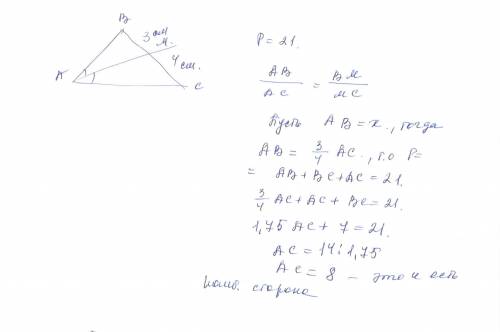 B
3 см
М.
4 см.
A
C
P = 21.
AB/AC = BM/MC
Пусть AB = x., тогда
AB = 3/4 AC., т.о P=
= AB + BC + AC = 21.
3/4 AC + AC + BC = 21.
1,75 AC + 7 = 21.
AC = 14 : 1,75
AC = 8 – это и есть
наиб. сторона